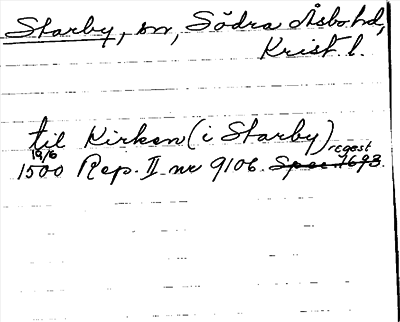 Starby, sn, Södra Åsbo hd,
Krist. l.
til Kirken (i Starby) regest
19/6
1500 Rep. II nr 9106. Spec. 1693.